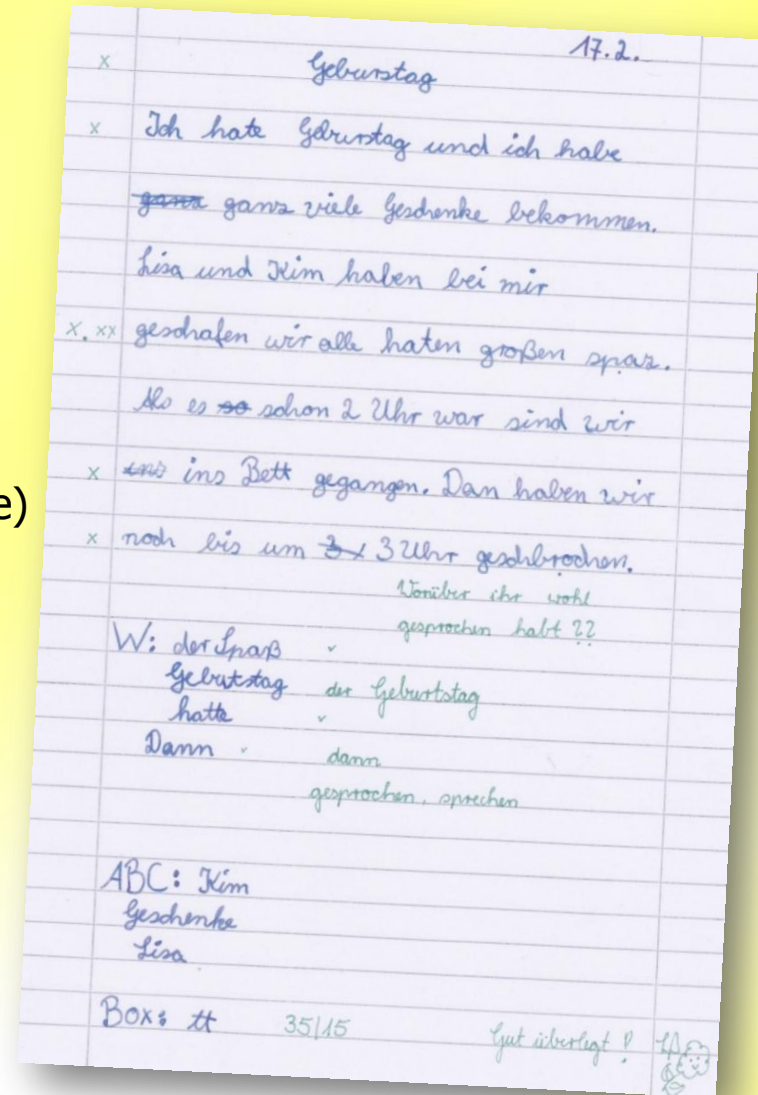 17.2.
x Geburstag
x Ich hate Geburstag und ich habe
ganz viele Geschenke bekommen.
Lisa und Kim haben bei mir
x. xx geschafen wir alle haten großen spaz.
Als es so schon 2 Uhr war sind wir
x ins ins Bett gegangen. Dan haben wir
e)
x noch bis um 3 3 Uhr geschbrochen.
Worüber ihr wohl
gesprochen habt ??
W: der Spaß ✓
Gebutstag der Geburtstag
hatte ✓
Dann ✓ dann
gesprochen, sprechen
ABC: Kim
Geschenke
Lisa
Box: tt 35/15 Gut überlegt!